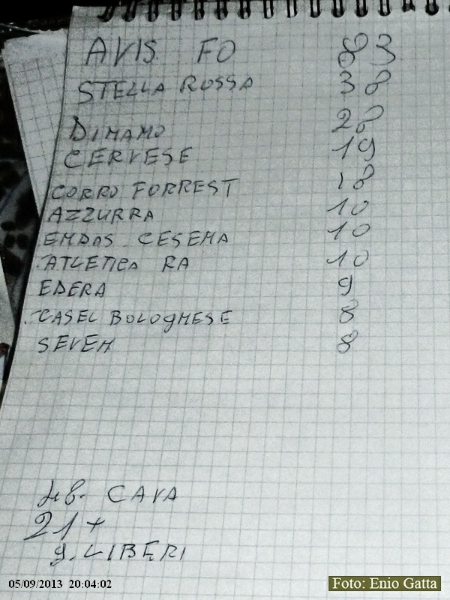 AVIS FO 83
STELLA ROSSA 38
DIMAMO 28
CERVESE 19
CORRO FORREST 18
AZZURRA 10
EMDAS CESEMA 10
ATLETICA RA 10
EDERA 9
CASEL BOLOGMESE 8
SEVEM 8
CAVA
21+
g. LIBERI
05/09/2013 20:04:02
Foto: Enio Gatta